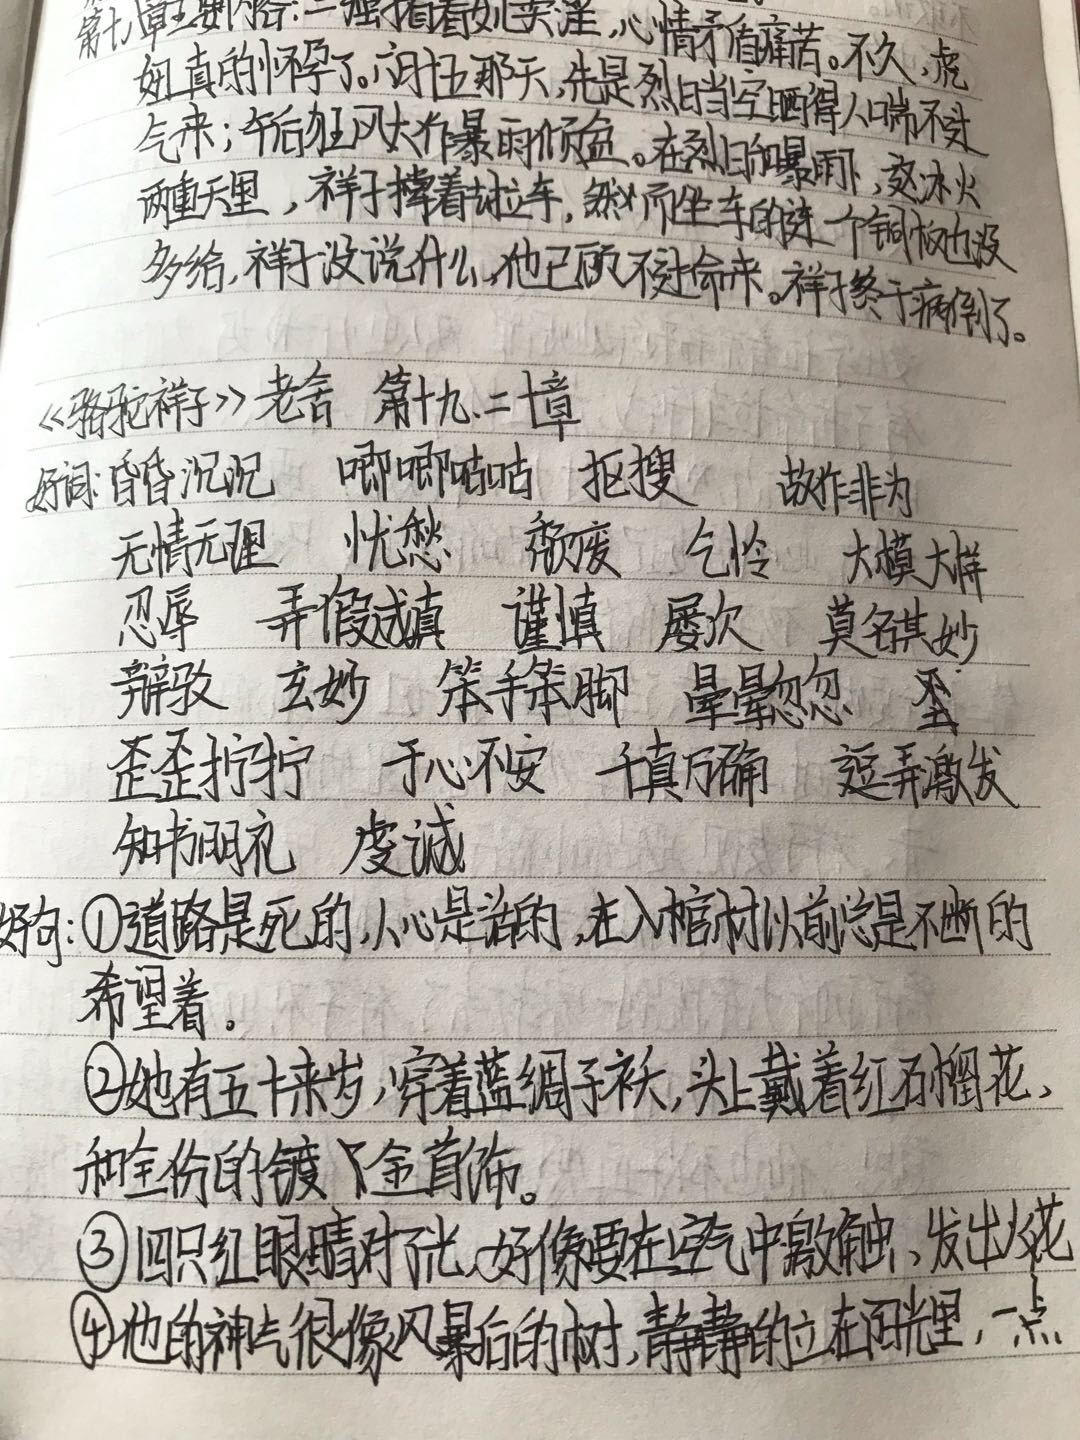 第十八章主要内容:二强子指着女儿卖淫,心情矛盾痛苦。不久,虎
妞真的怀孕了。六月十五那天,先是烈日当空晒得人喘不过
气来;午后狂风大作暴雨倾盆。在烈日和暴雨下,这冰火
两重天里,祥子挣着去拉车,然而坐车的连一个铜板也没
多给,祥子没说什么,他已顾不过命来。祥子终于病倒了。
《骆驼祥子》老舍 第十九、二十章
好词:昏昏沉沉 唧唧咕咕 抠搜 故作非为
无情无理 忧愁 颓废 乞怜 大模大样
忍辱 弄假成真 谨慎 屡次 莫名其妙
辩驳 玄妙 笨手笨脚 晕晕忽忽
歪歪拧拧 于心不安 千真万确 逗弄激发
知书明礼 虔诚
好句:①道路是死的,人心是活的,在入棺材以前总是不断的
希望着。
②她有五十来岁,穿着蓝绸子袄,头上戴着红石榴花,
和全份的镀金首饰。
③四只红眼睛对了光,好像要在空气中激触,发出火花
④他的神气很像风暴后的树,静静的立在阳光里,一点